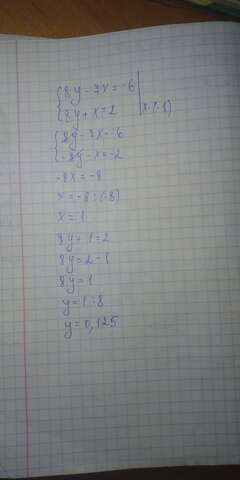 {8y-7x=-6
{8y+x=2 | x·(-1)
{8y-7x=-6
{-8y-x=-2
-8x=-8
x=-8:(-8)
x=1
8y+1=2
8y=2-1
8y=1
y=1:8
y=0,125